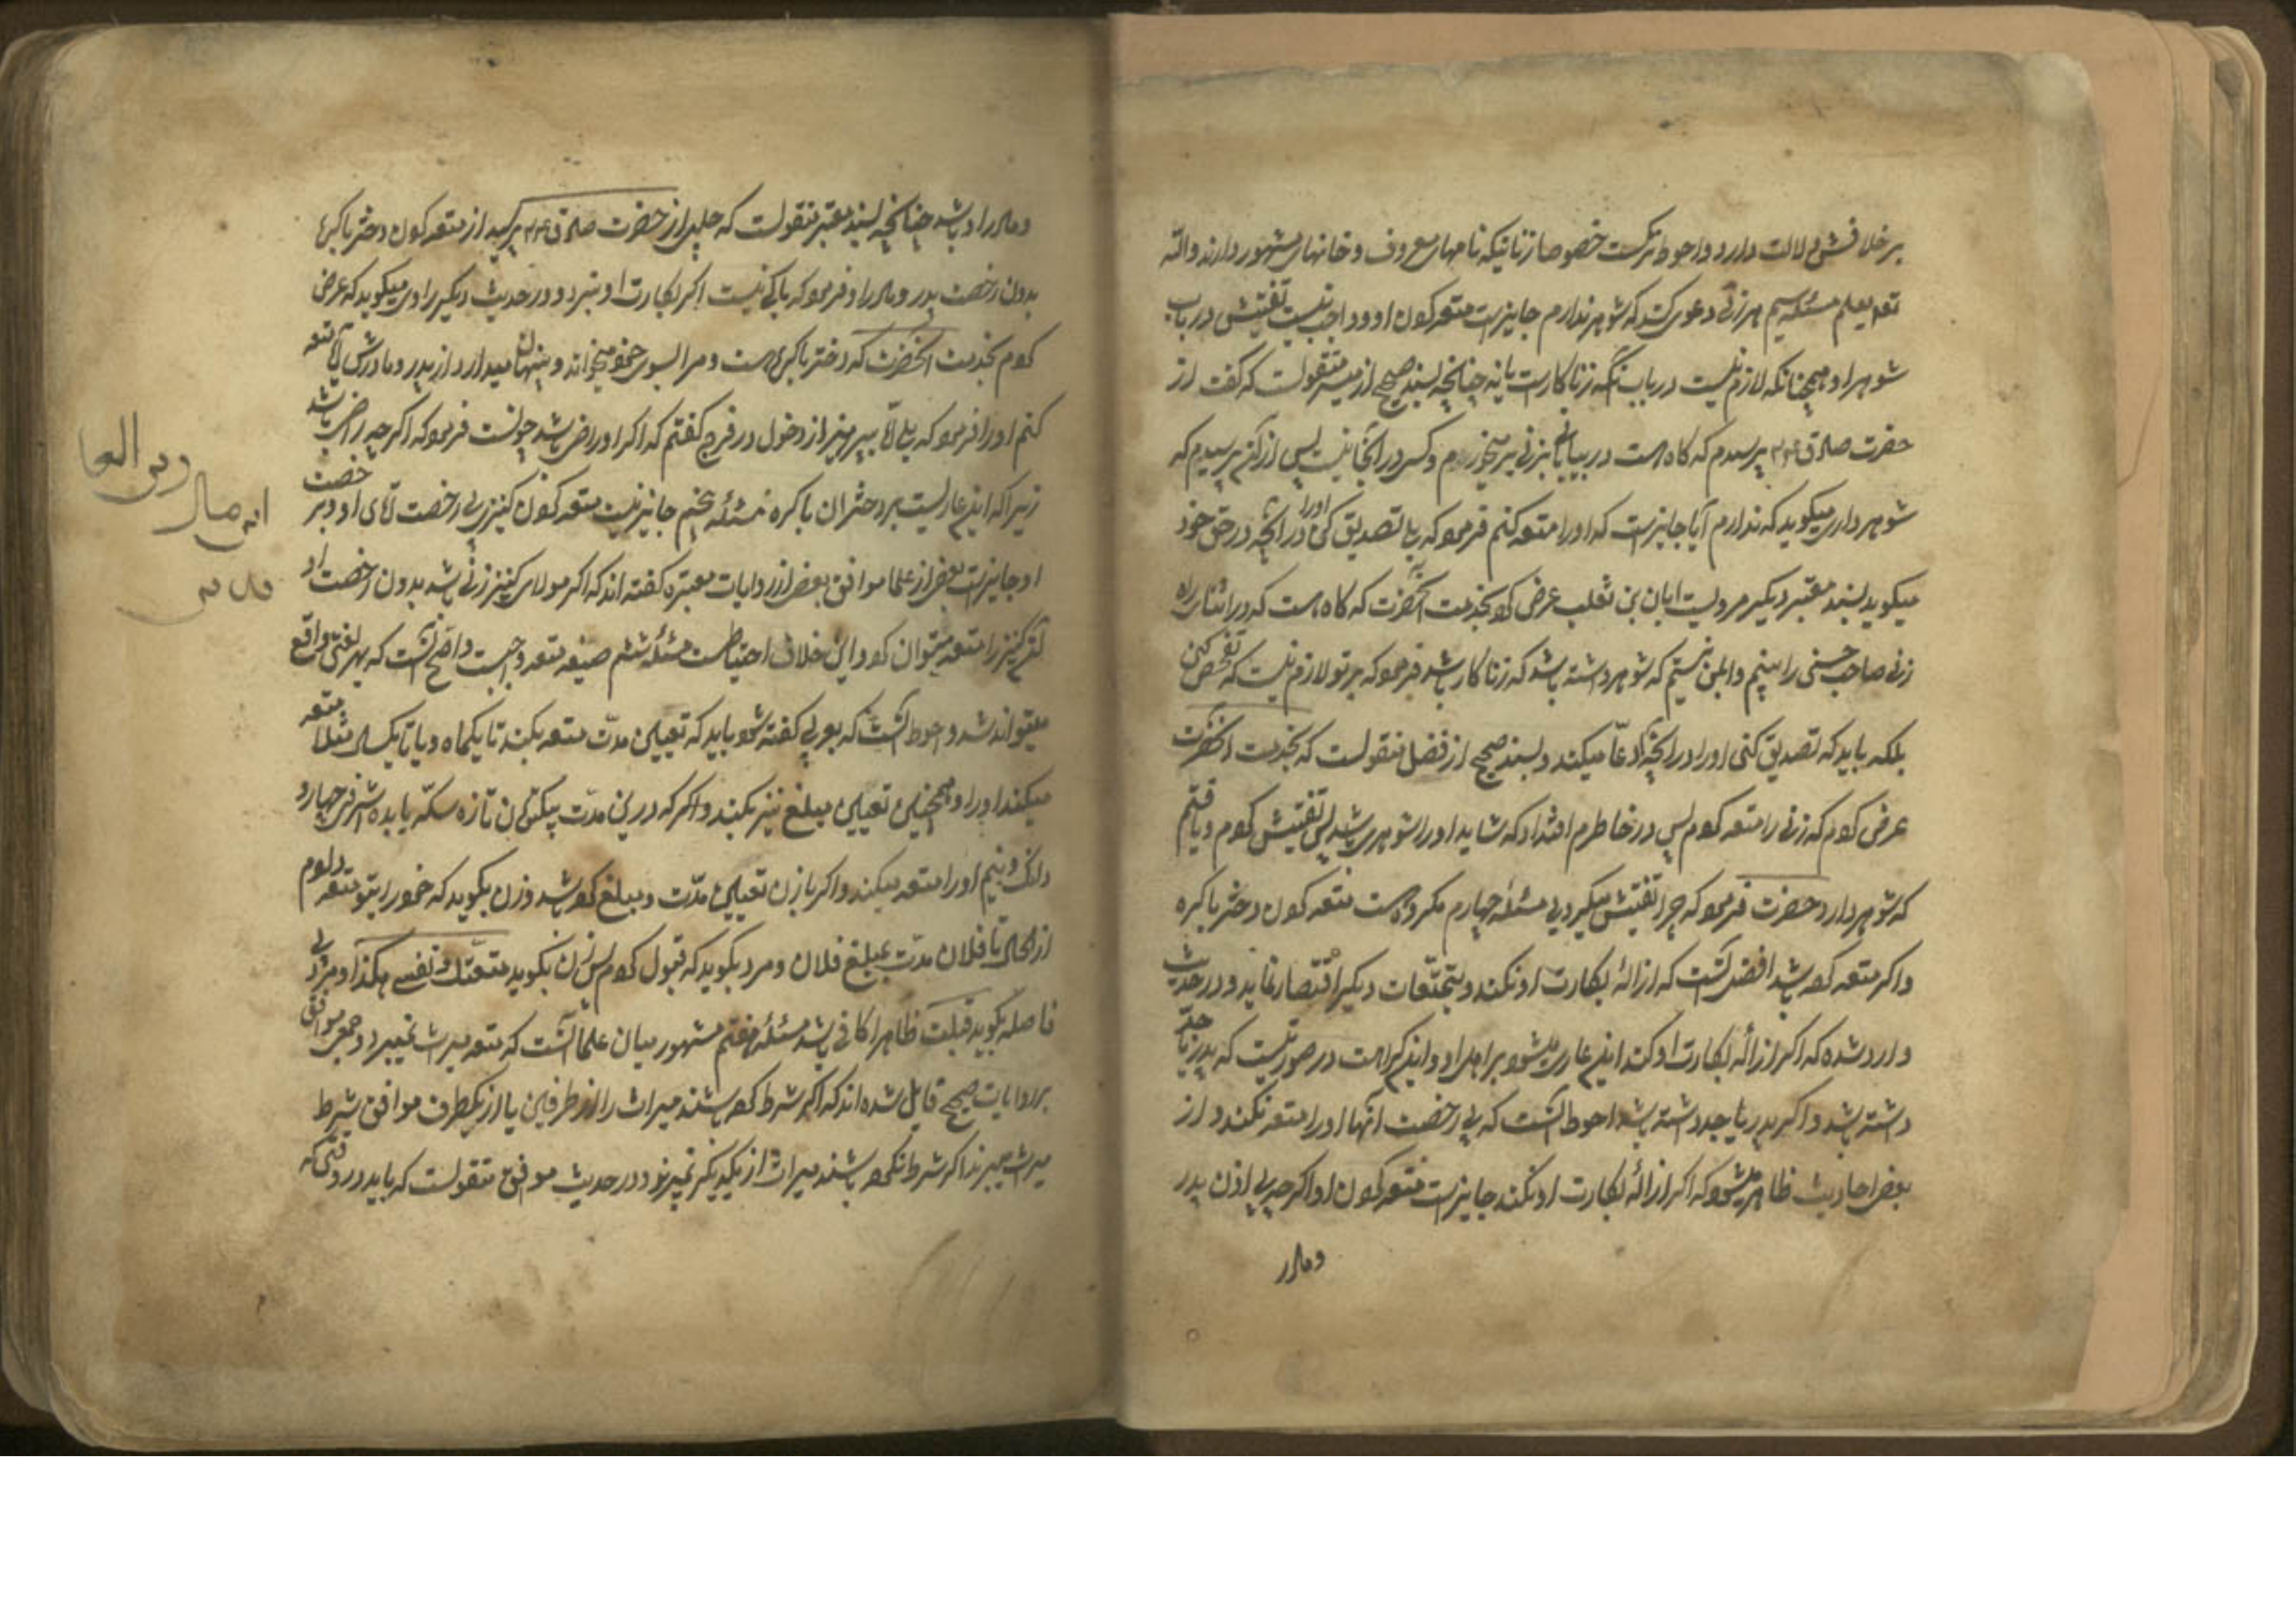 بر خلافش دلالت دارد و احوط ترکست خصوصا زنانیکه نامهای معروف و خانهای مشهور دارند والله
تعم یعلم مسئله سیم هر زنی دعوی کند که شوهر ندارم جایزست متعه کردن او و واجب نیست تفتیش در باب
شوهر او و همچنانکه لازم نیست در باب آنکه زناکارست یا نه چنانچه بسند صحیح از میسر منقولست که گفت از
حضرت صادق ع م پرسیدم که کاه هست در بیابانی بزنی بر میخورم و کسی در آنجا نیست پس از آن زن پرسیدم که
شوهر داری میکوید که ندارم آیا جایزست که او را متعه کنم فرمود که بلی تصدیق کن او را در آنچه در حق خود
میکوید بسند معتبر دیکر مرویست ابان بن تغلب عرض کرد بخدمت آنحضرت که کاه هست که در اثنای راه
زنی صاحب حسنی را میبینم و ایمن نیستم که شوهر داشته باشد که زناکار باشد فرمود که بر تو لازم نیست که تفحص کنی
بلکه باید که تصدیق کنی او را در آنچه ادعا میکند و بسند صحیح از فضل منقولست که بخدمت آنحضرت
عرض کردم که زنی را متعه کردم پس در خاطرم افتاد که شاید او را شوهری باشد پس تفتیش کردم و یافتم
که شوهر دارد حضرت فرمود که چرا تفتیش میکردی مسئله چهارم مکروهست متعه کردن دختر باکره
و اکر متعه کرده باشد افضل آنست که ازاله بکارت او نکند و بتمتعات دیکر اقتصار نماید و در حدیث
وارد شده که اکر ازاله بکارت او کند این عار میشود بر اهل او و این کراهت در صورتیست که پدر یا جد
داشته باشد و اکر پدر یا جد داشته باشد احوط آنست که بی رخصت آنها او را متعه نکند و از
بعض احادیث ظاهر میشود که اکر ازاله بکارت او نکند جایزست متعه کردن او اکرچه بی اذن پدر
و مادر
و مادر او باشد چنانچه بسند معتبر منقولست که حلبی از حضرت صادق ع م پرسید از متعه کردن دختر باکره
بدون رخصت پدر و مادر او فرمود که باکی نیست اکر بکارت او نبرد و در حدیث دیکر راوی میکوید که عرض
کردم بخدمت آنحضرت که دختر باکره هست و مرا بسوی خود میخواند و پنهان میدارد از پدر و مادرش آیا متعه
کنم او را فرمود که بلی اما بپرهیز از دخول در فرج کفتم که اکر او راضی باشد چونست فرمود که اکرچه راضی باشد
زیرا که این عاریست بر دختران باکره مسئله پنجم جایز نیست متعه کردن کنیز بی رخصت آقای او و بر خصت
او جایزست بعضی از علما موافق بعض از روایات معتبره کفته اند که اکر مولای کنیز زنی باشد بدون رخصت او
آن کنیز را متعه میتوان کرد و این خلاف احتیاطست مسئله ششم صیغه متعه واجبست و اصح آنست که بهر لغتی واقع
میتواند شد و احوط آنست که بعربی کفته شود باید که تعیین مدت متعه بکند تا یکماه و یا تا یکسال مثلا متعه
میکند او را و همچنین تعیین مبلغ نیز بکند و اکر که درین مدت بیکتومان تازه سکه یا بده اشرفی چهار و
دانک و نیم او را متعه میکند و اکر با زن تعیین مدت و مبلغ کرده باشد و زن بکوید که خود را بتو متعه دادم
از حال تا فلان مدت بمبلغ فلان و مرد بکوید که قبول کردم پس زن بکوید متعتک نفسی هکذا و مرد بی
فاصله بکوید قبلت ظاهرا کافی باشد مسئله هفتم مشهور میان علما آنست که متعه میراث نمیبرد و جمعی موافق
بر روایات صحیح قایل شده اند که اکر شرط کرده باشند میراث را از طرفین یا از یکطرف موافق شرط
میراث میبرند اکر شرط نکرده باشند میراث از یکدیکر نمیبرند و در حدیث موافق منقولست که باید در وقتی که